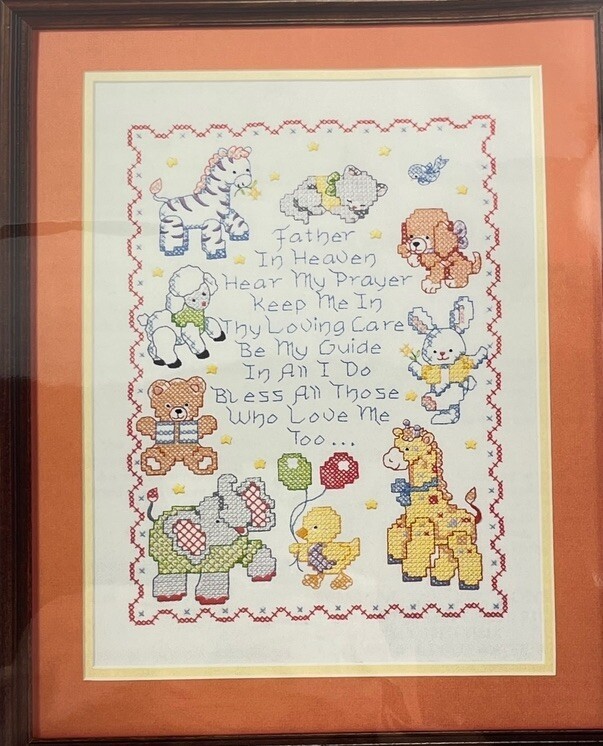 Father
In Heaven
Hear My Prayer
Keep Me In
Thy Loving Care
Be My Guide
In All I Do
Bless All Those
Who Love Me
Too...